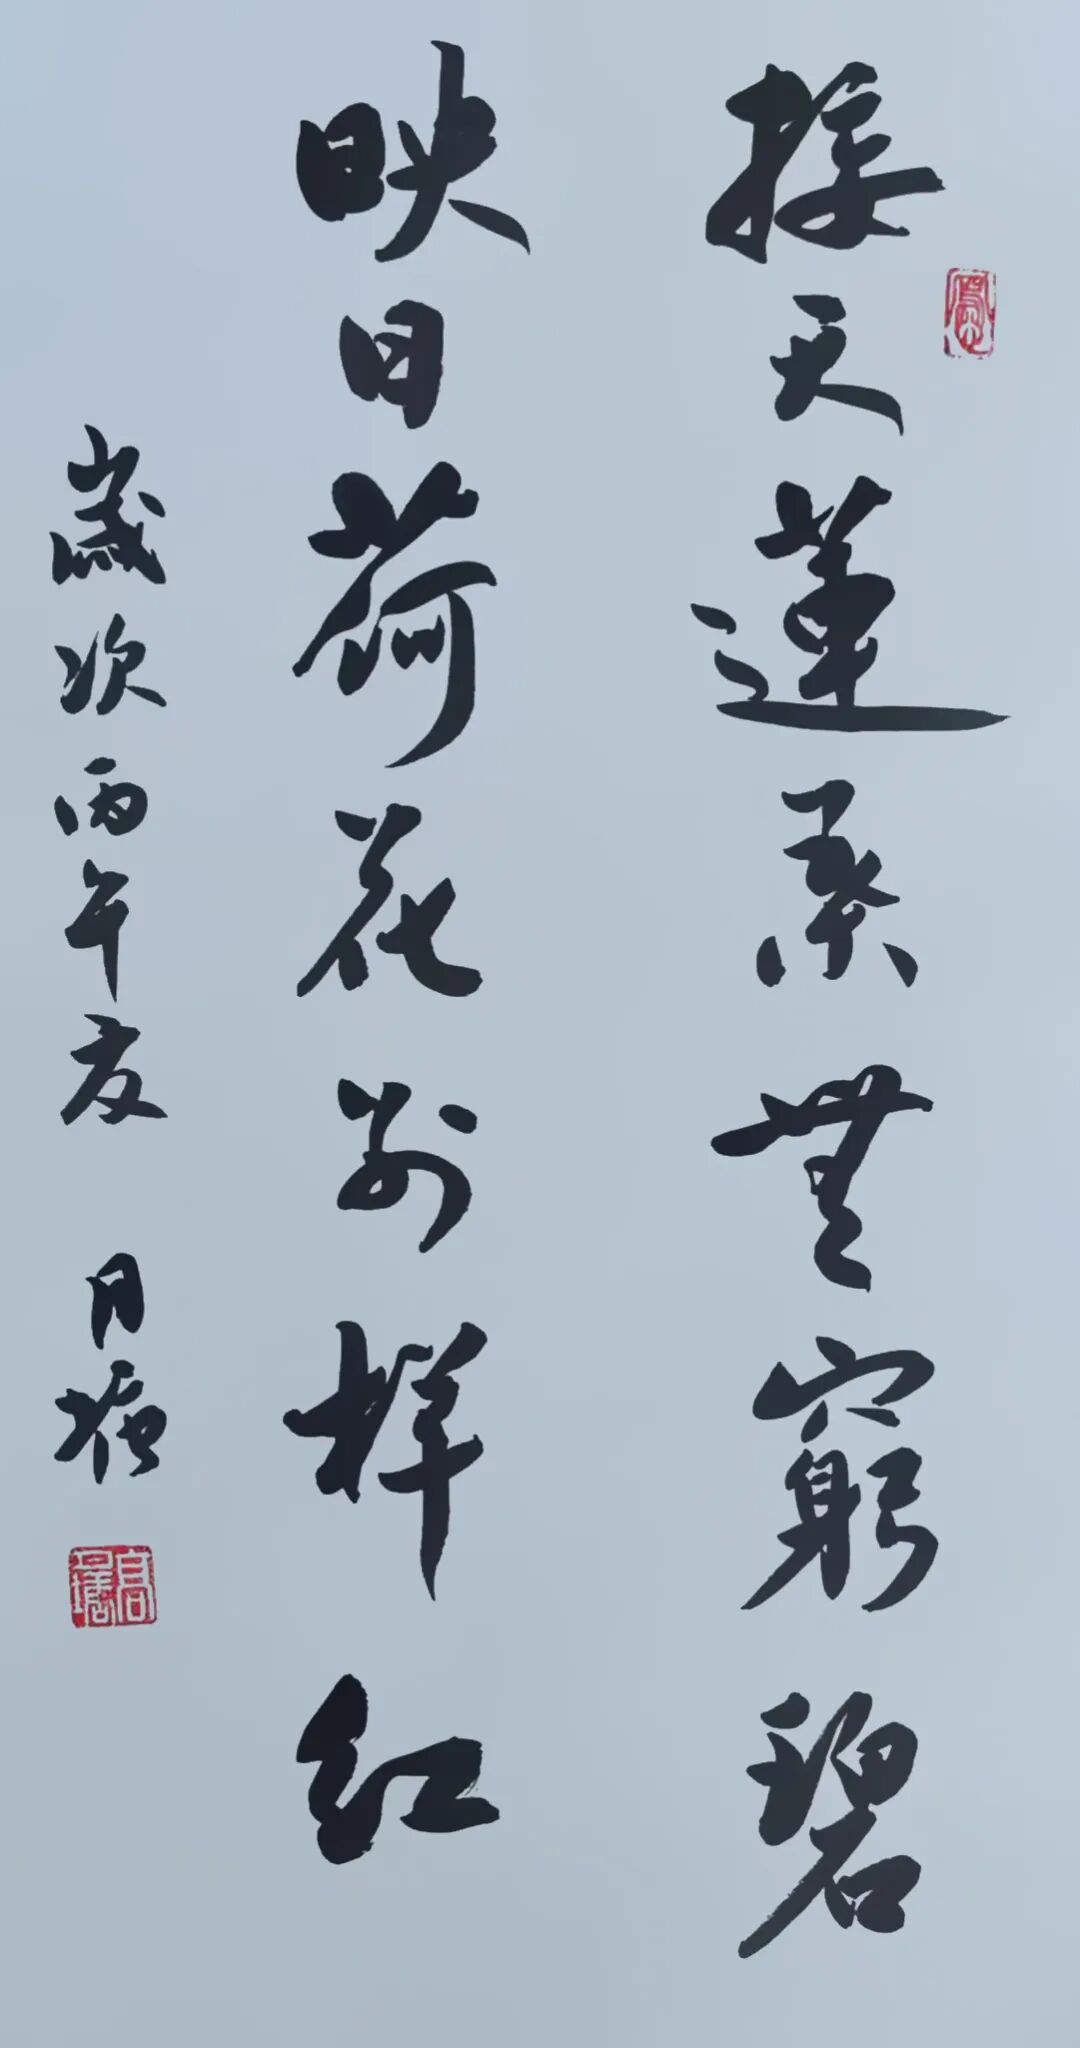 接天蓮葉無窮碧
映日荷花別樣红
歲次丙午夏 月